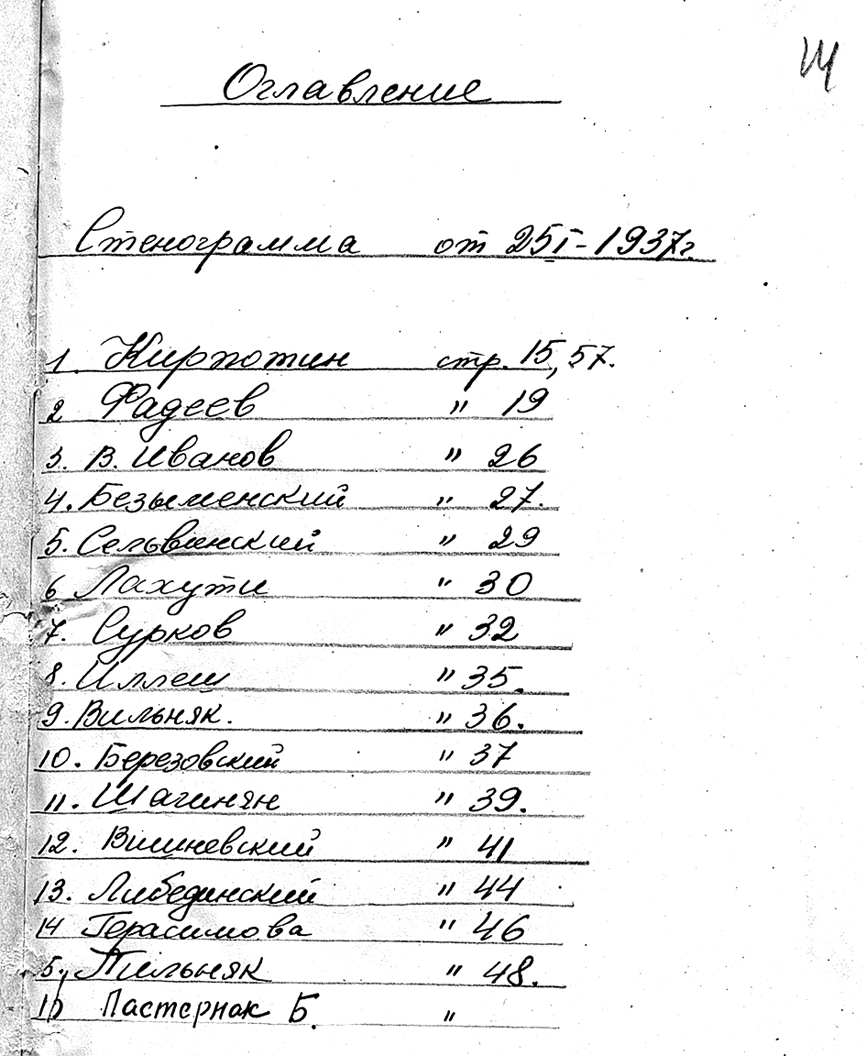 14
Оглавление
Стенограмма от 25I-1937г.
1. Кирпотин стр. 15, 57.
2 Фадеев " 19
3. В. Иванов " 26
4. Безыменский " 27.
5. Сельвинский " 29
6 Лахути " 30
7. Сурков " 32
8. Иллеш " 35.
9. Вильняк. " 36.
10. Березовский " 37
11. Шагинян " 39.
12. Вишневский " 41
13. Либединский " 44
14 Герасимова " 46
5, Пильняк " 48.
Пастернак Б. "